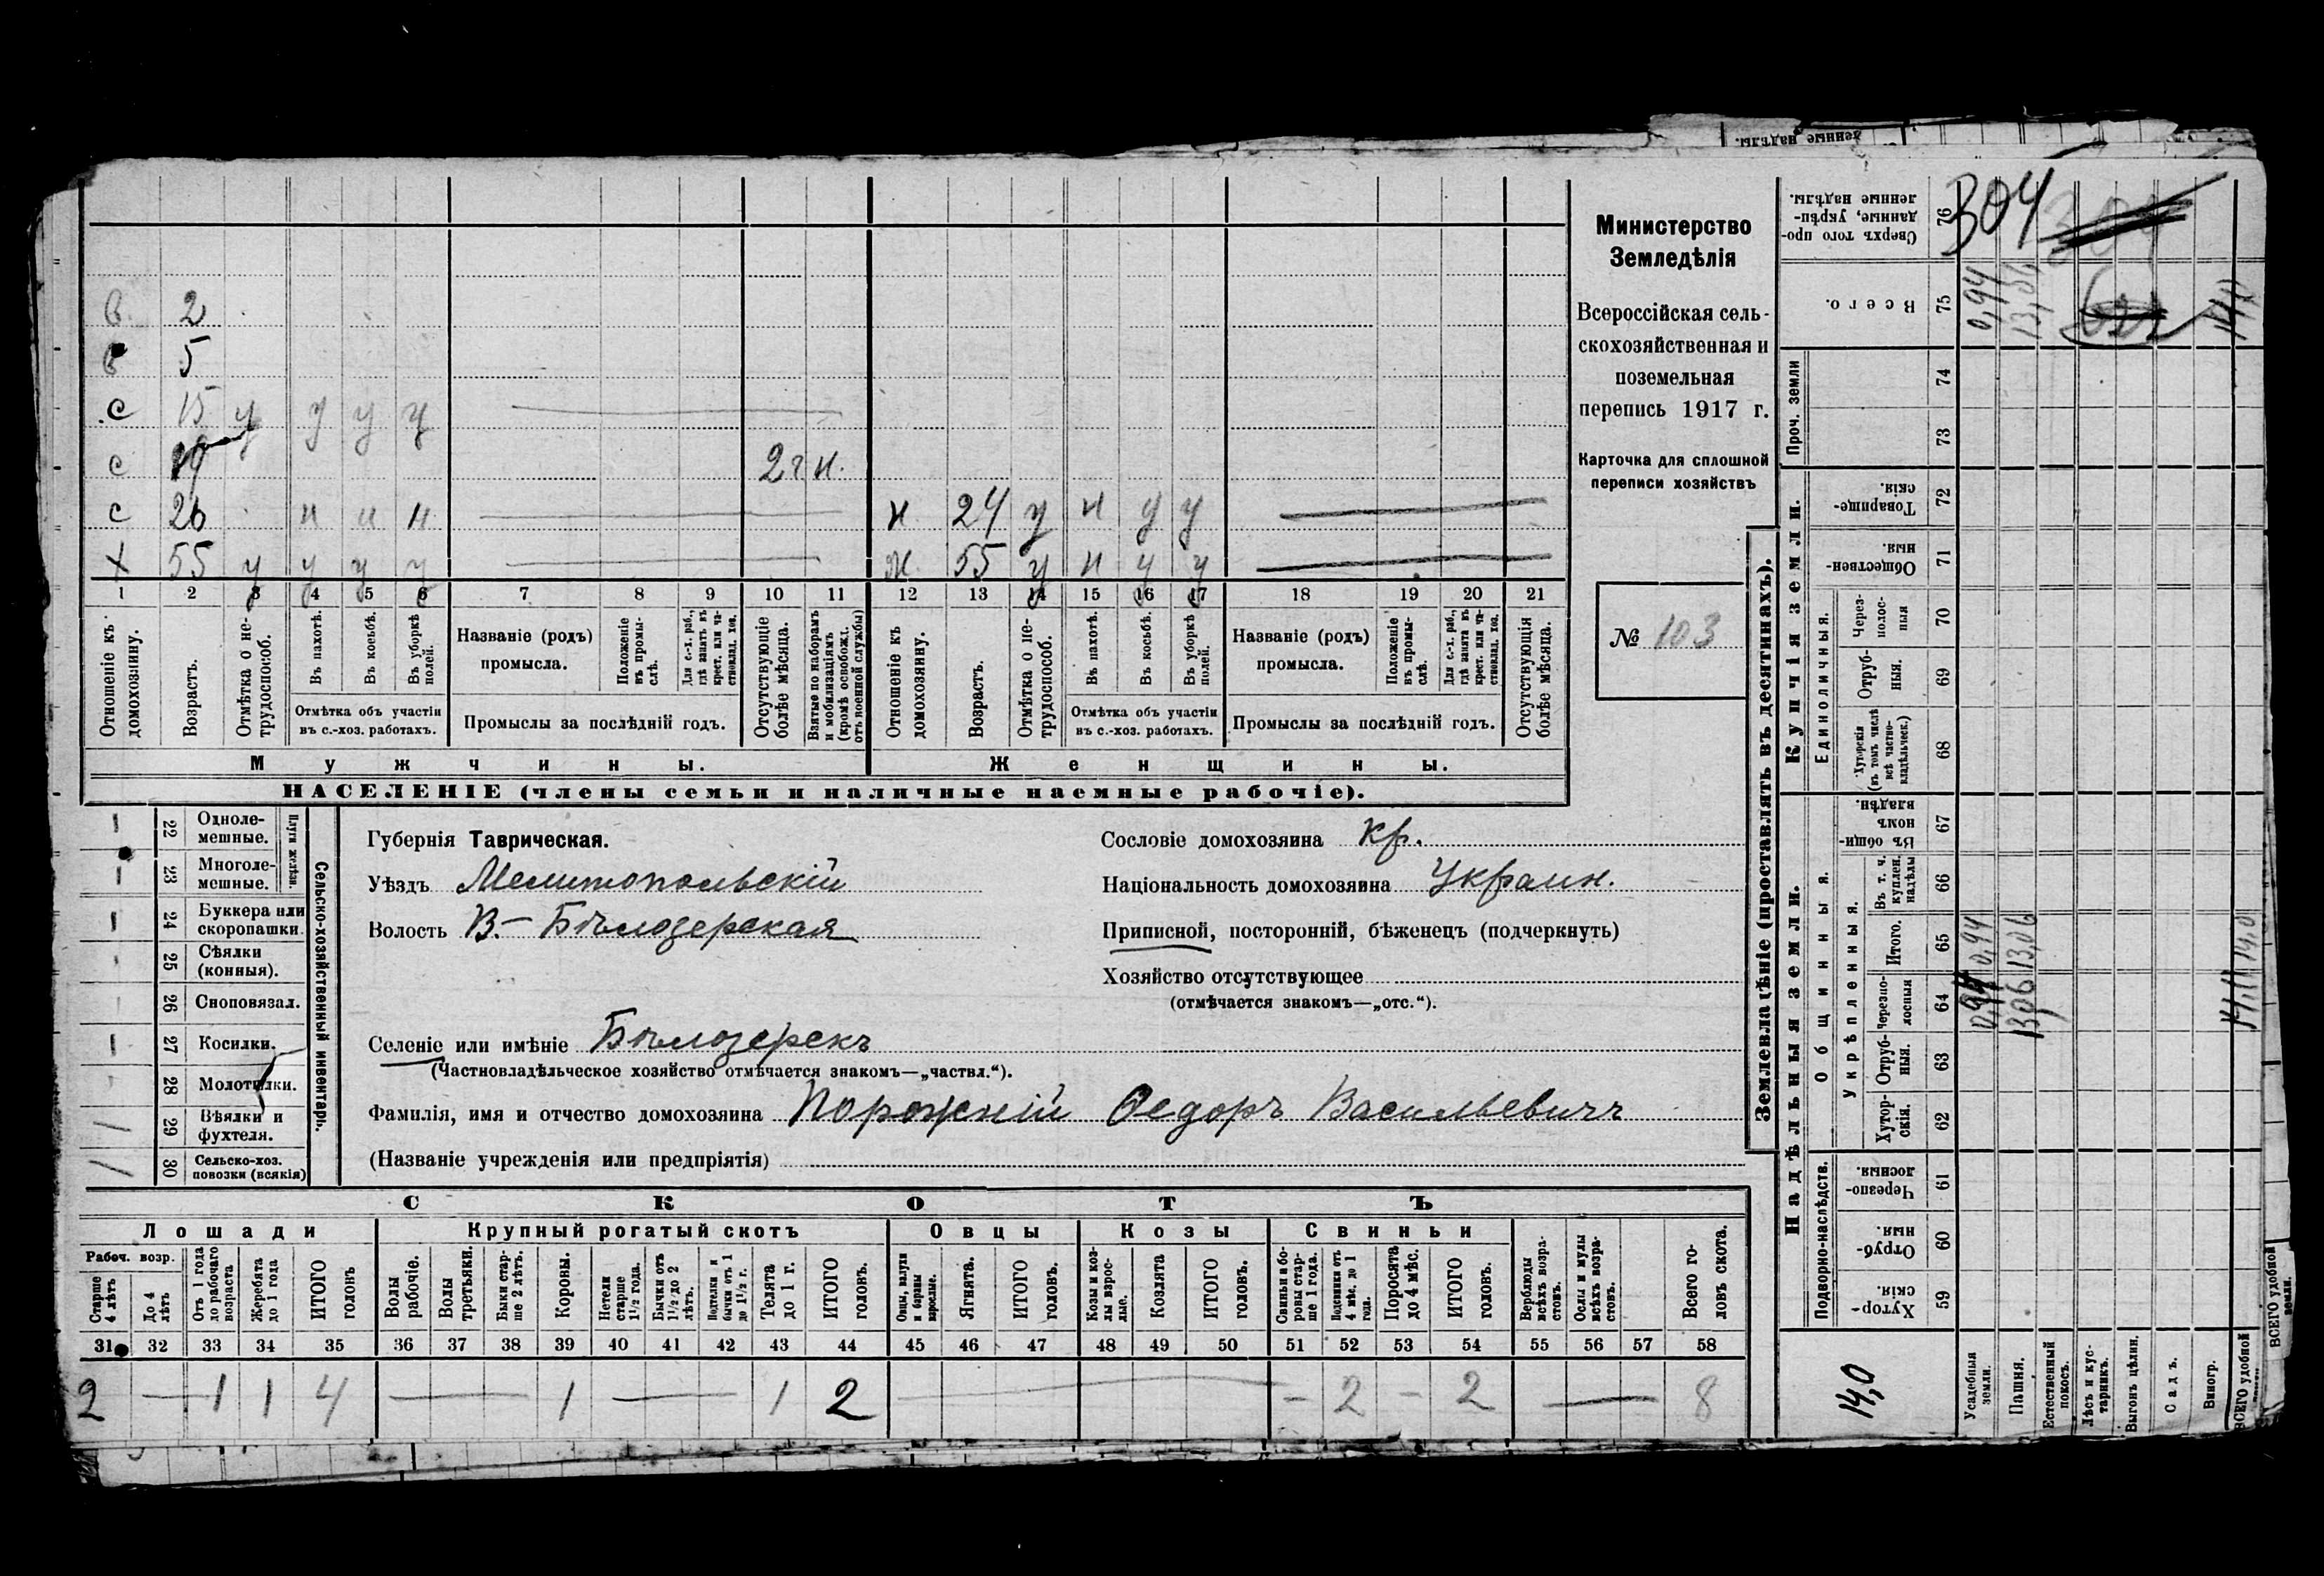 енные надѣлы.
в. 2
в 5
с 15 у у у у
с 19 2 г н.
с 26 н н н. н. 24 у н у у
х 55 у у у у ж. 55 у н у у
1 2 3 4 5 6 7 8 9 10 11 12 13 14 15 16 17 18 19 20 21
Отношеніе къ домохозяину.
Возрастъ.
Отмѣтка о нетрудоспособ.
Въ пахотѣ.
Въ косьбѣ.
Въ уборкѣ полей.
Отмѣтка объ участіи
въ с.-хоз. работахъ.
Названіе (родъ)
промысла.
Положеніе въ промыслѣ.
Для с.-х. раб., гдѣ занятъ въ крест. или частновлад. хоз.
Промыслы за послѣдній годъ.
Отсутствующіе болѣе мѣсяца.
Взятые по наборамъ и мобилизаціямъ (кромѣ освобожд. отъ военной службы)
Отношеніе къ домохозяину.
Возрастъ.
Отмѣтка о нетрудоспособ.
Въ пахотѣ.
Въ косьбѣ.
Въ уборкѣ полей.
Отмѣтка объ участіи
въ с.-хоз. работахъ.
Названіе (родъ)
промысла.
Положеніе въ промыслѣ.
Для с.-х. раб., гдѣ занята въ крест. или частновлад. хоз.
Промыслы за послѣдній годъ.
Отсутствующія болѣе мѣсяца.
Мужчины. Женщины.
НАСЕЛЕНІЕ (члены семьи и наличные наемные рабочіе).
Министерство
Земледѣлія
Всероссійская сель-
скохозяйственная и
поземельная
перепись 1917 г.
Карточка для сплошной
переписи хозяйствъ
№ 103
Сельско-хозяйственный инвентарь.
Плуги желѣзн.
1 22 Одноле-
мешные.
1 23 Многоле-
мешные.
1 24 Буккера или
скоропашки.
25 Сѣялки
(конныя).
26 Сноповязал.
1 27 Косилки.
28 Молотилки.
1 29 Вѣялки и
фухтеля.
1 30 Сельско-хоз.
повозки (всякія)
Губернія Таврическая.
Уѣздъ Мелитопольскій
Волость В.-Бѣлозерская
Сословіе домохозяина кр.
Національность домохозяина Украин.
Приписной, посторонній, бѣженецъ (подчеркнуть)
Хозяйство отсутствующее
(отмѣчается знакомъ—„отс.“).
Селеніе или имѣніе Бѣлозерскъ
(Частновладѣльческое хозяйство отмѣчается знакомъ—„частвл.“).
Фамилія, имя и отчество домохозяина Порожній Ѳедоръ Васильевичъ
(Названіе учрежденія или предпріятія)
СКОТЪ
Лошади Крупный рогатый скотъ Овцы Козы Свиньи
Рабоч. возр.
Старше 4 лѣтъ
До 4 лѣтъ
Отъ 1 года до рабочаго возраста
Жеребята до 1 года
ИТОГО головъ
Волы рабочіе.
Волы третьяки.
Быки старше 2 лѣтъ.
Коровы.
Нетели старше 1½ года.
Бычки отъ 1½ до 2 лѣтъ.
Подтелки и бычки отъ 1 до 1½ г.
Телята до 1 г.
ИТОГО головъ.
Овцы, валухи и бараны взрослые.
Ягнята.
ИТОГО головъ.
Козы и козлы взрослые.
Козлята
ИТОГО головъ.
Свиньи и боровы старше 1 года.
Подсвинки отъ 4 мѣс. до 1 года.
Поросята до 4 мѣс.
ИТОГО головъ.
Верблюды всѣхъ возрастовъ.
Ослы и мулы всѣхъ возрастовъ.
Всего головъ скота.
31 32 33 34 35 36 37 38 39 40 41 42 43 44 45 46 47 48 49 50 51 52 53 54 55 56 57 58
2 — 1 1 4 — 1 — 1 2 — — 2 — 2 — 8
Землевладѣніе (проставлять въ десятинахъ).
Купчія земли.
Надѣльныя земли.
Проч. земли
Единоличныя.
Общинныя.
Укрѣпленныя.
Подворно-наслѣдств.
Сверхъ того проданные, укрѣпленные надѣлы. 76 304
Всего. 75 0,94 14,0
74
73
Товарищескія. 72
Общественныя. 71
Черезполосныя 70
Отрубныя. 69
Хуторскія (въ томъ числѣ всѣ частновладѣльческ.) 68
Въ общинномъ владѣн. 67
Въ т. ч. куплен. надѣлы 66
Итого. 65 0,94 13,06 14,0
Черезполосныя 64 0,94 13,06
Отрубныя. 63
Хуторскія. 62
Черезполосныя. 61
Отрубныя. 60
Хуторскія. 59
14,0
Усадебныя земли.
Пашня.
Естественный покосъ.
Лѣсъ и кустарникъ.
Выгонъ цѣлин.
Садъ.
Виногр.
ВСЕГО удобной
ВСЕГО удобной земли.